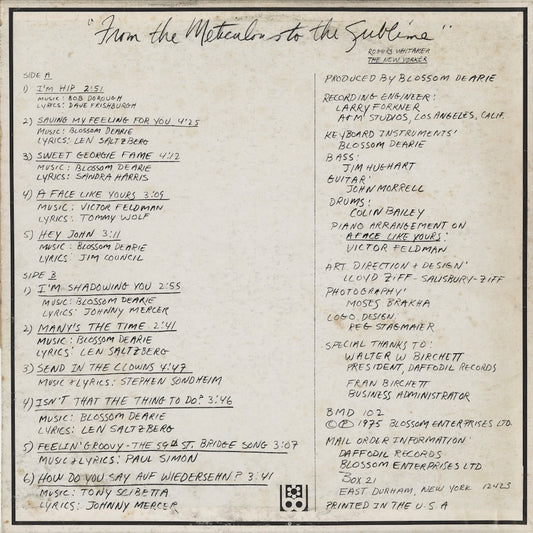 "From the Meticulous to the Sublime"
ROGERS WHITAKER
THE NEW YORKER
SIDE A
1) I'M HIP 2:51
MUSIC: BOB DOROUGH
LYRICS: DAVE FRISHBURGH
2) SAVING MY FEELING FOR YOU 4:25
MUSIC: BLOSSOM DEARIE
LYRICS: LEN SALTZBERG
3) SWEET GEORGIE FAME 4:12
MUSIC: BLOSSOM DEARIE
LYRICS: SANDRA HARRIS
4) A FACE LIKE YOURS 3:09
MUSIC: VICTOR FELDMAN
LYRICS: TOMMY WOLF
5) HEY JOHN 3:11
MUSIC: BLOSSOM DEARIE
LYRICS: JIM COUNCIL
SIDE B
1) I'M SHADOWING YOU 2:55
MUSIC: BLOSSOM DEARIE
LYRICS: JOHNNY MERCER
2) MANY'S THE TIME 2:41
MUSIC: BLOSSOM DEARIE
LYRICS: LEN SALTZBERG
3) SEND IN THE CLOWNS 4:47
MUSIC & LYRICS: STEPHEN SONDHEIM
4) ISN'T THAT THE THING TO DO? 3:46
MUSIC: BLOSSOM DEARIE
LYRICS: LEN SALTZBERG
5) FEELIN' GROOVY - THE 59th ST. BRIDGE SONG 3:07
MUSIC & LYRICS: PAUL SIMON
6) HOW DO YOU SAY AUF WIEDERSEHN? 3:41
MUSIC: TONY SCIBETTA
LYRICS: JOHNNY MERCER
PRODUCED BY BLOSSOM DEARIE
RECORDING ENGINEER:
LARRY FORKNER
A+M STUDIOS, LOS ANGELES, CALIF.
KEYBOARD INSTRUMENTS:
BLOSSOM DEARIE
BASS:
JIM HUGHART
GUITAR:
JOHN MORRELL
DRUMS:
COLIN BAILEY
PIANO ARRANGEMENT ON
A FACE LIKE YOURS:
VICTOR FELDMAN
ART DIRECTION + DESIGN:
LLOYD ZIFF - SALISBURY-ZIFF
PHOTOGRAPHY:
MOSES BRAKHA
LOGO DESIGN:
PEG STAGMAIER
SPECIAL THANKS TO:
WALTER W BIRCHETT
PRESIDENT, DAFFODIL RECORDS
FRAN BIRCHETT
BUSINESS ADMINISTRATOR
BMD 102
© ℗ 1975 BLOSSOM ENTERPRISES LTD.
MAIL ORDER INFORMATION:
DAFFODIL RECORDS
BLOSSOM ENTERPRISES LTD
BOX 21
EAST DURHAM, NEW YORK 12423
PRINTED IN THE U.S.A